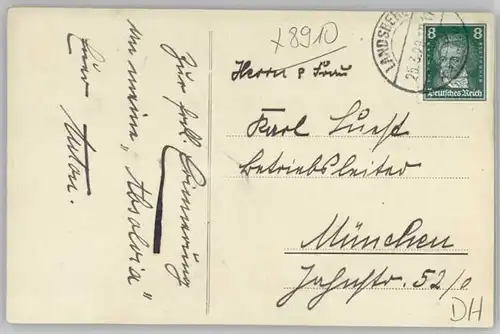 Zur frdl. Erinnerung
an meine „Absolvia“
Euer Anton.
x8910
Herrn & Frau
Karl
Betriebsleiter
München
Jahnstr. 52/0
DH
LANDSBERG
8 8
Deutsches Reich